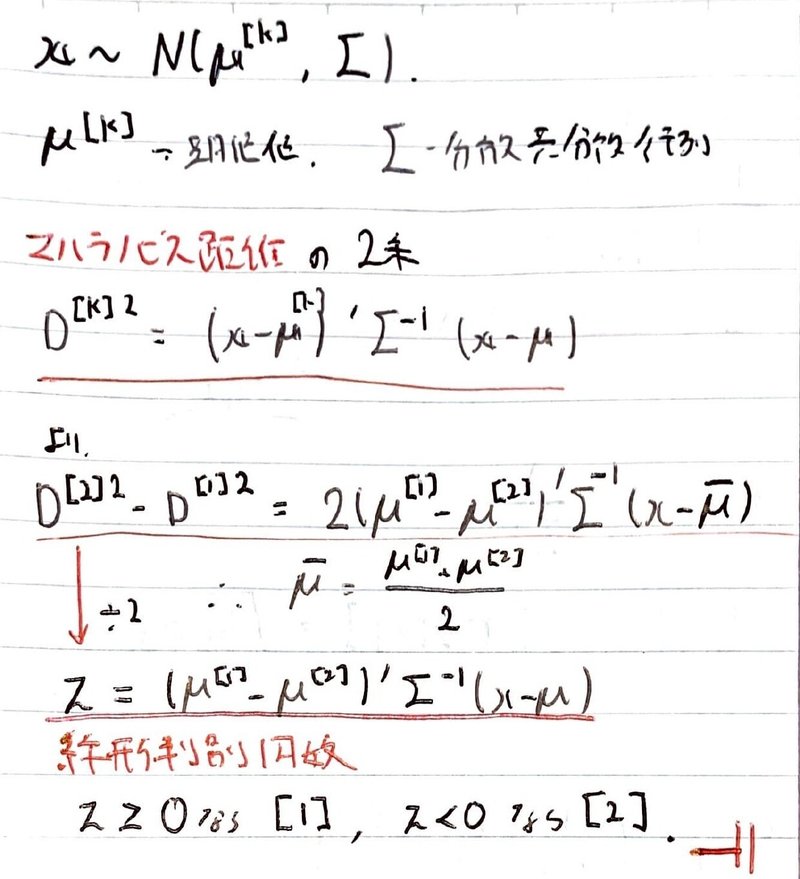 x ~ N(μ^[k], Σ).
μ^[k] - 期待値. Σ - 分散共分散行列
マハラノビス距離 の 2乗
D^[k]2 = (x-μ^[k])' Σ^-1 (x-μ)
より.
D^[2]2 - D^[1]2 = 2(μ^[1] - μ^[2])' Σ^-1 (x-μ̄)
÷2 ∴ μ̄ = (μ^[1]+μ^[2])/2
z = (μ^[1] - μ^[2])' Σ^-1 (x-μ)
線形判別関数
z ≥ 0 なら [1], z<0 なら [2].